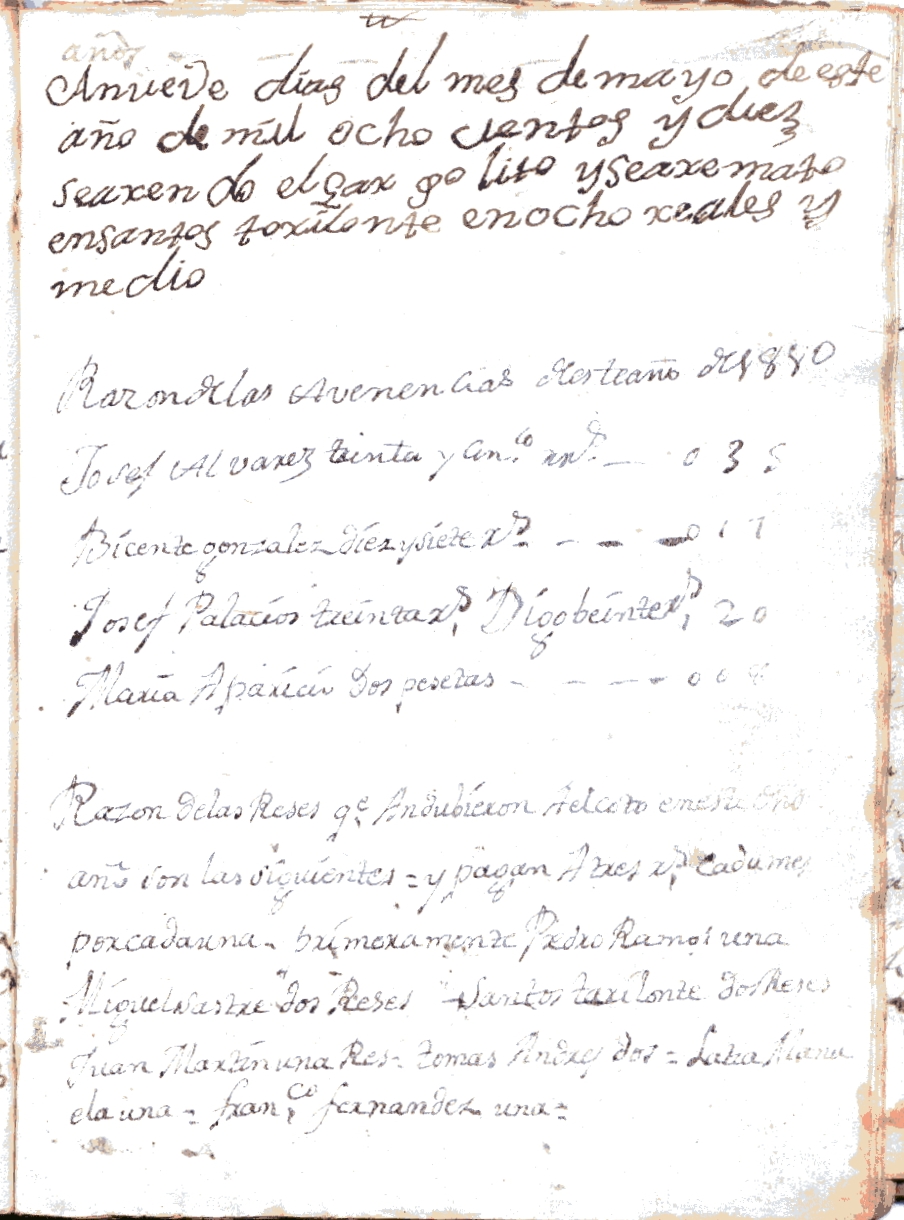 años
Anueve dias del mes demayo deeste
año de mil ocho cientos y diez
searendo elgar golito ysearemato
ensantos toxilonte enocho reales y
medio
Razondelas Avenencias desteaño de1810
Josef Alvarez treinta y cinco rrs — 035
Bicente gonzalez diez ysiete rs - - - 017
Josef Palacios treinta rs, Digo beinte rs, 20
Maria Aparicio Dos pesetas - - - - 008
Razon delas Reses qe Andubieron Aelcoto eneste dho
año son las siguientes = y pagan Atres rs Cadames
porcadauna - primeramente Pedro Ramos una
Miguel sastre dos Reses - Santos taxilonte dos Reses
Juan Martin una Res - tomas Andres dos = La tia Manu
ela una = franco fernandez una =